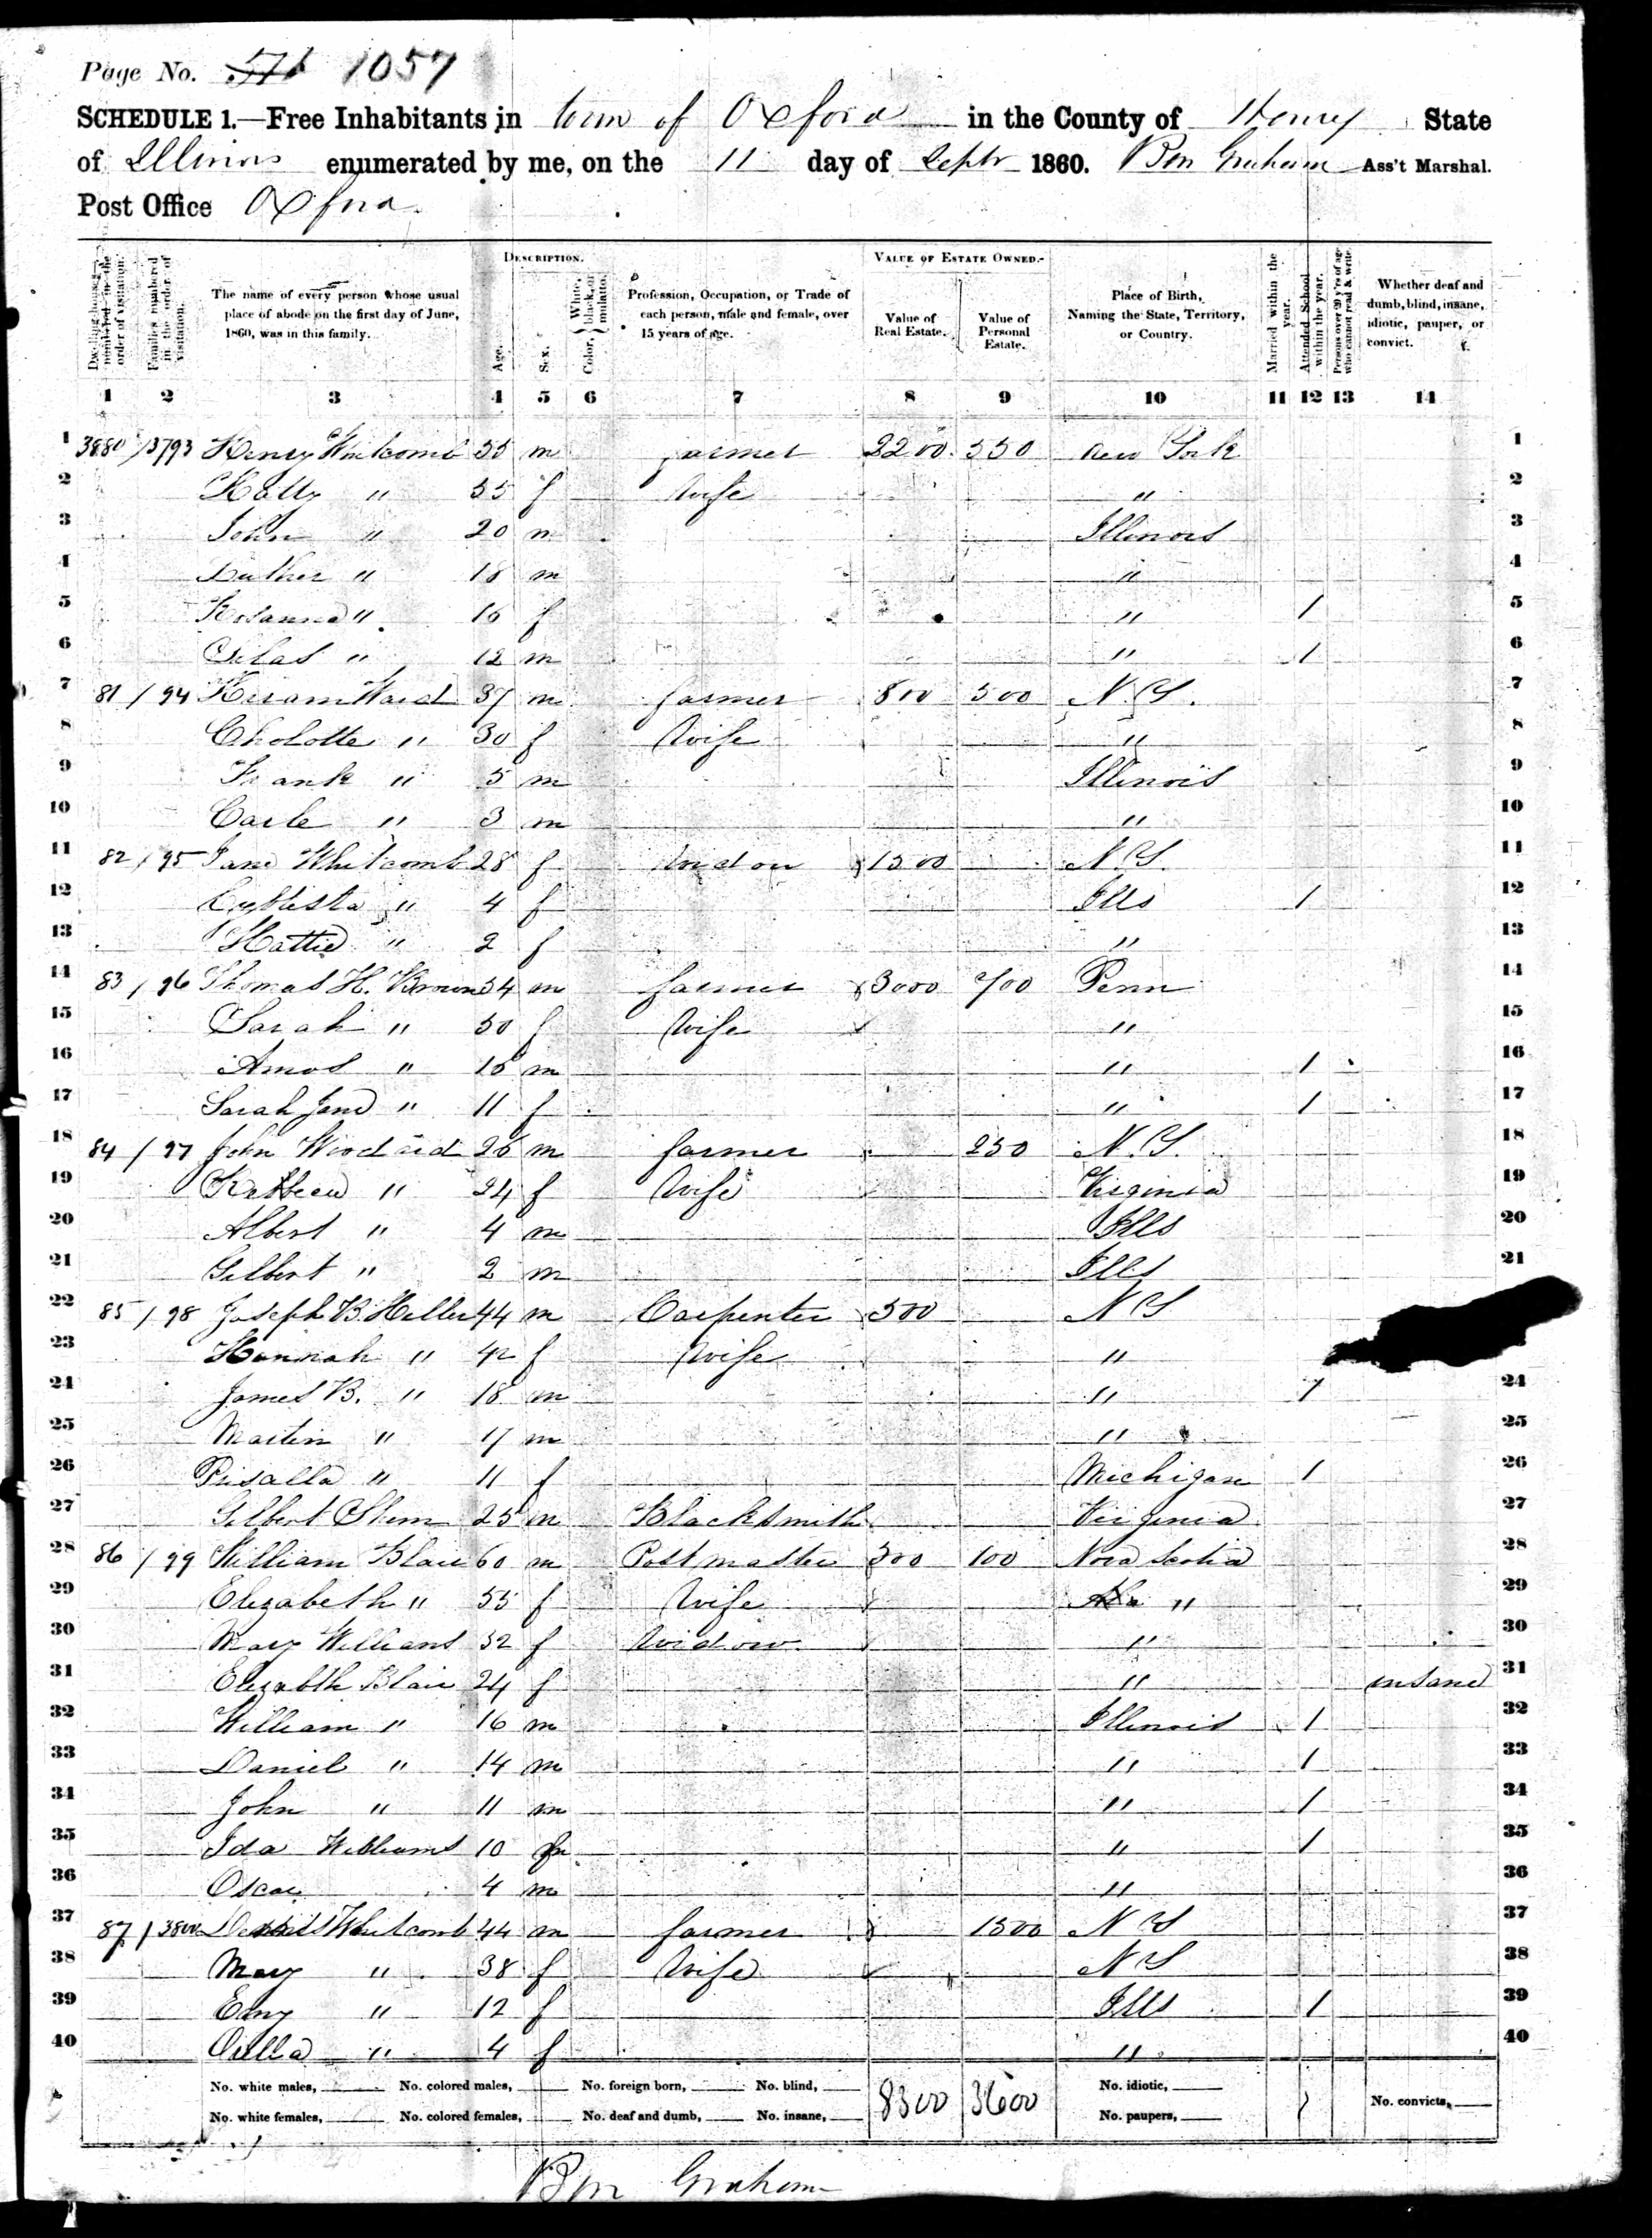 Page No. 576 1057
SCHEDULE 1.—Free Inhabitants in town of Oxford in the County of Henry State
of Illinois enumerated by me, on the 11 day of Septr 1860. Ben Graham Ass't Marshal.
Post Office Oxford.
DESCRIPTION. VALUE OF ESTATE OWNED.
Dwelling-houses numbered in the order of visitation. Families numbered in the order of visitation. The name of every person whose usual place of abode on the first day of June, 1860, was in this family. Age. Sex. Color, { White, black, or mulatto. Profession, Occupation, or Trade of each person, male and female, over 15 years of age. Value of Real Estate. Value of Personal Estate. Place of Birth, Naming the State, Territory, or Country. Married within the year. Attended School within the year. Persons over 20 y'rs of age who cannot read & write. Whether deaf and dumb, blind, insane, idiotic, pauper, or convict.
1 2 3 4 5 6 7 8 9 10 11 12 13 14
1 3880 / 3793 Henry 55 m farmer 2200 550 New York 1
2 " 55 f Wife " 2
3 John " 20 m Illinois 3
4 Luther " 18 m " 4
5 Rosanna " 16 f " / 5
6 Silas " 12 m " / 6
7 81 / 94 Hiram Ward 37 m farmer 800 500 N.Y. 7
8 Cholotte " 30 f Wife " 8
9 Frank " 5 m Illinois 9
10 Carle " 3 m " 10
11 82 / 95 Jane Whitcomb 28 f Widow 1500 N Y. 11
12 " 4 f Ills / 12
13 Hattie " 2 f " 13
14 83 / 96 Thomas H. Brown 54 m farmer 3000 700 Penn 14
15 Sarah " 50 f Wife " 15
16 Amos " 15 m " / 16
17 Sarah Jane " 11 f " / 17
18 84 / 97 John Woodard 26 m farmer 250 N.Y. 18
19 " 24 f Wife Virginia 19
20 Albert " 4 m Ills 20
21 Gilbert " 2 m Ills 21
22 85 / 98 Joseph B. 44 m Carpenter 500 N Y
23 Hannah " 42 f Wife "
24 James B. " 18 m " / 24
25 Martin " 17 m " 25
26 Prisalla " 11 f Michigan / 26
27 Gilbert 25 m Blacksmith Virginia 27
28 86 / 99 William Blair 60 m Postmaster 300 100 Nova Scotia 28
29 Elizabeth " 55 f Wife " 29
30 Mary Williams 32 f Widow " 30
31 Elizabth Blair 24 f " insane 31
32 William " 16 m Illinois / 32
33 Daniel " 14 m " / 33
34 John " 11 m " / 34
35 Ida Williams 10 f " / 35
36 Oscar 4 m " 36
37 87 / 3800 Whitcomb 44 m farmer 1500 N Y 37
38 Mary " 38 f Wife N Y 38
39 " 12 f Ills / 39
40 " 4 f " 40
No. white males, No. colored males, No. foreign born, No. blind, 8300 3600 No. idiotic,
No. white females, No. colored females, No. deaf and dumb, No. insane, No. paupers, No. convicts,
Ben Graham